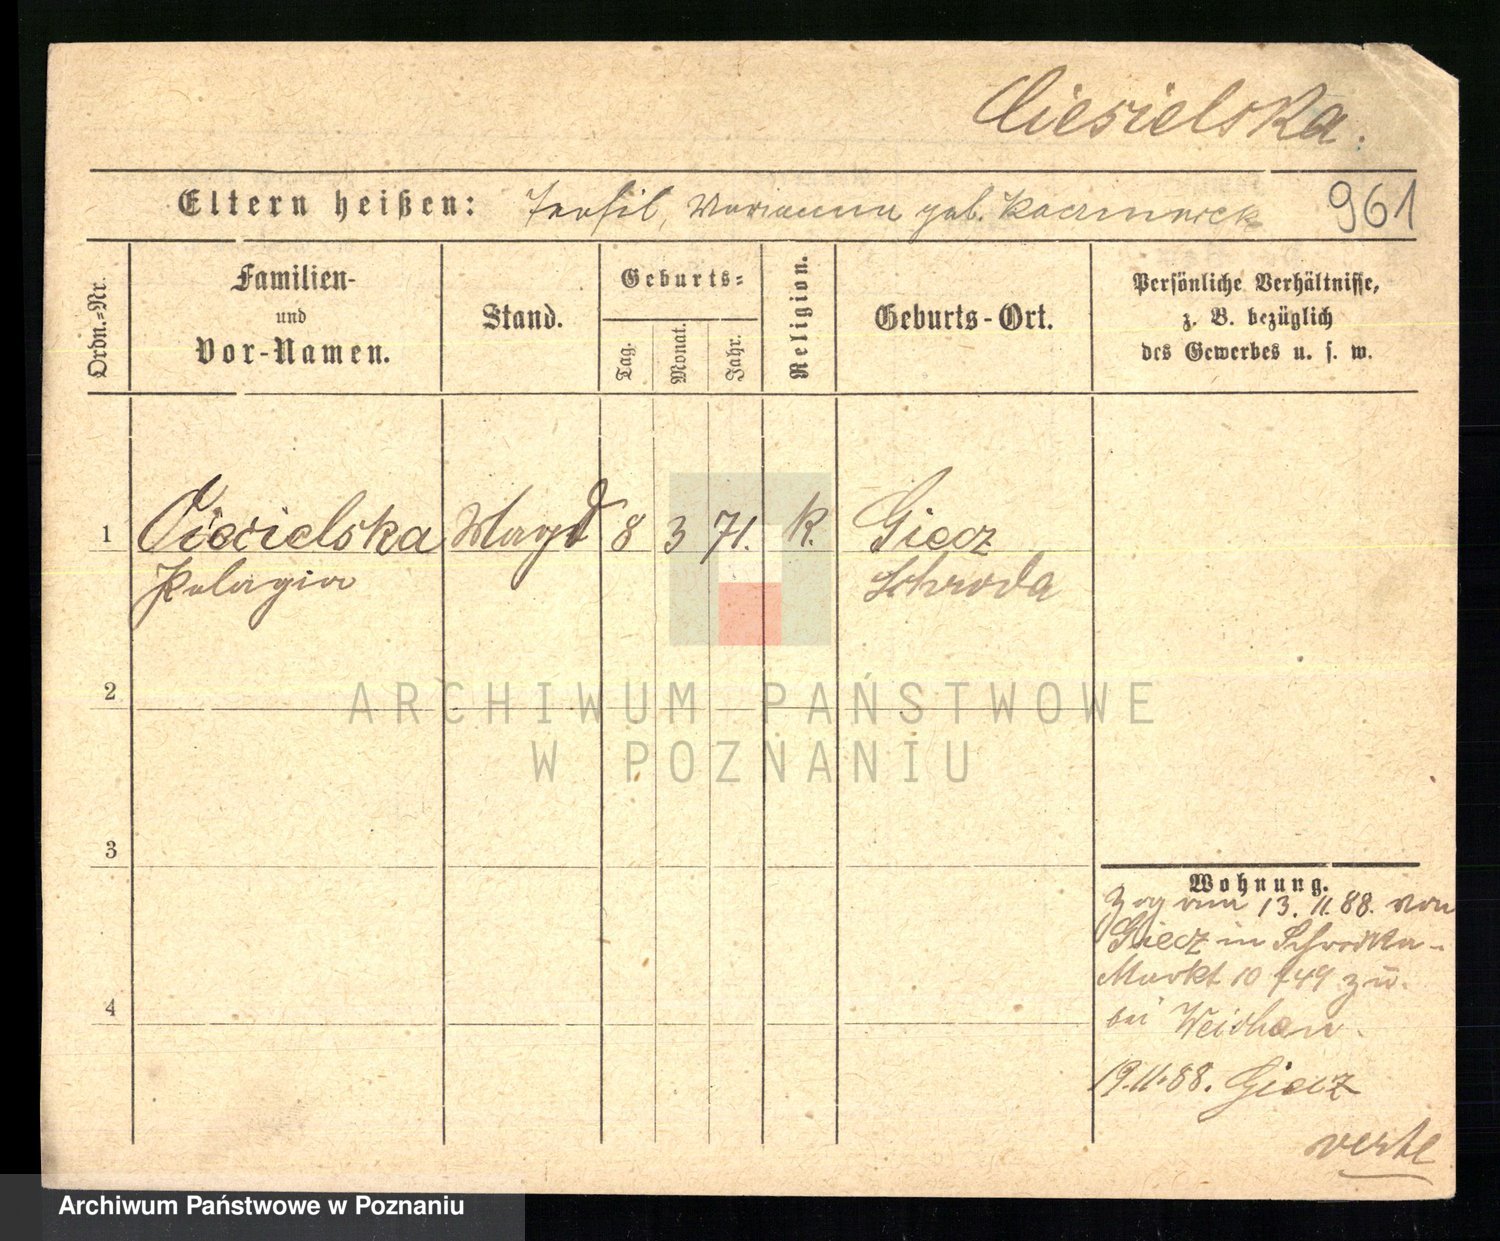 Ciesielska.
Eltern heißen: Teofil, Marianna geb. Kaczmarek
961
Ordn.-Nr.
Familien-
und
Vor-Namen.
Stand.
Geburts-
Tag.
Monat.
Jahr.
Religion.
Geburts-Ort.
Persönliche Verhältnisse,
z. B. bezüglich
des Gewerbes u. s. w.
1 Ciesielska Magd 8 3 71. K. Giecz
Pelagia Schroda
2
ARCHIWUM PAŃSTWOWE
W POZNANIU
3
4
Wohnung.
Zog am 13.11.88. von
Giecz in Schrodka-
Markt 10/149 zu.
bei
19.11.88. Giecz
verte
Archiwum Państwowe w Poznaniu